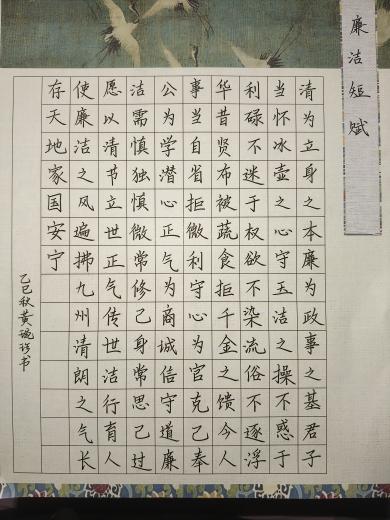 廉洁短赋
清为立身之本廉为政事之基君子
当怀冰壶之心守玉洁之操不惑于
利碌不迷于权欲不染流俗不逐浮
华昔贤布被蔬食拒千金之馈今人
事当自省拒微利守心为官克己奉
公为学潜心正气为商诚信守道廉
洁需慎独慎微常修己身常思己过
愿以清书立世正气传世洁行育人
使廉洁之风遍拂九州清朗之气长
存天地家国安宁
乙巳秋黄书